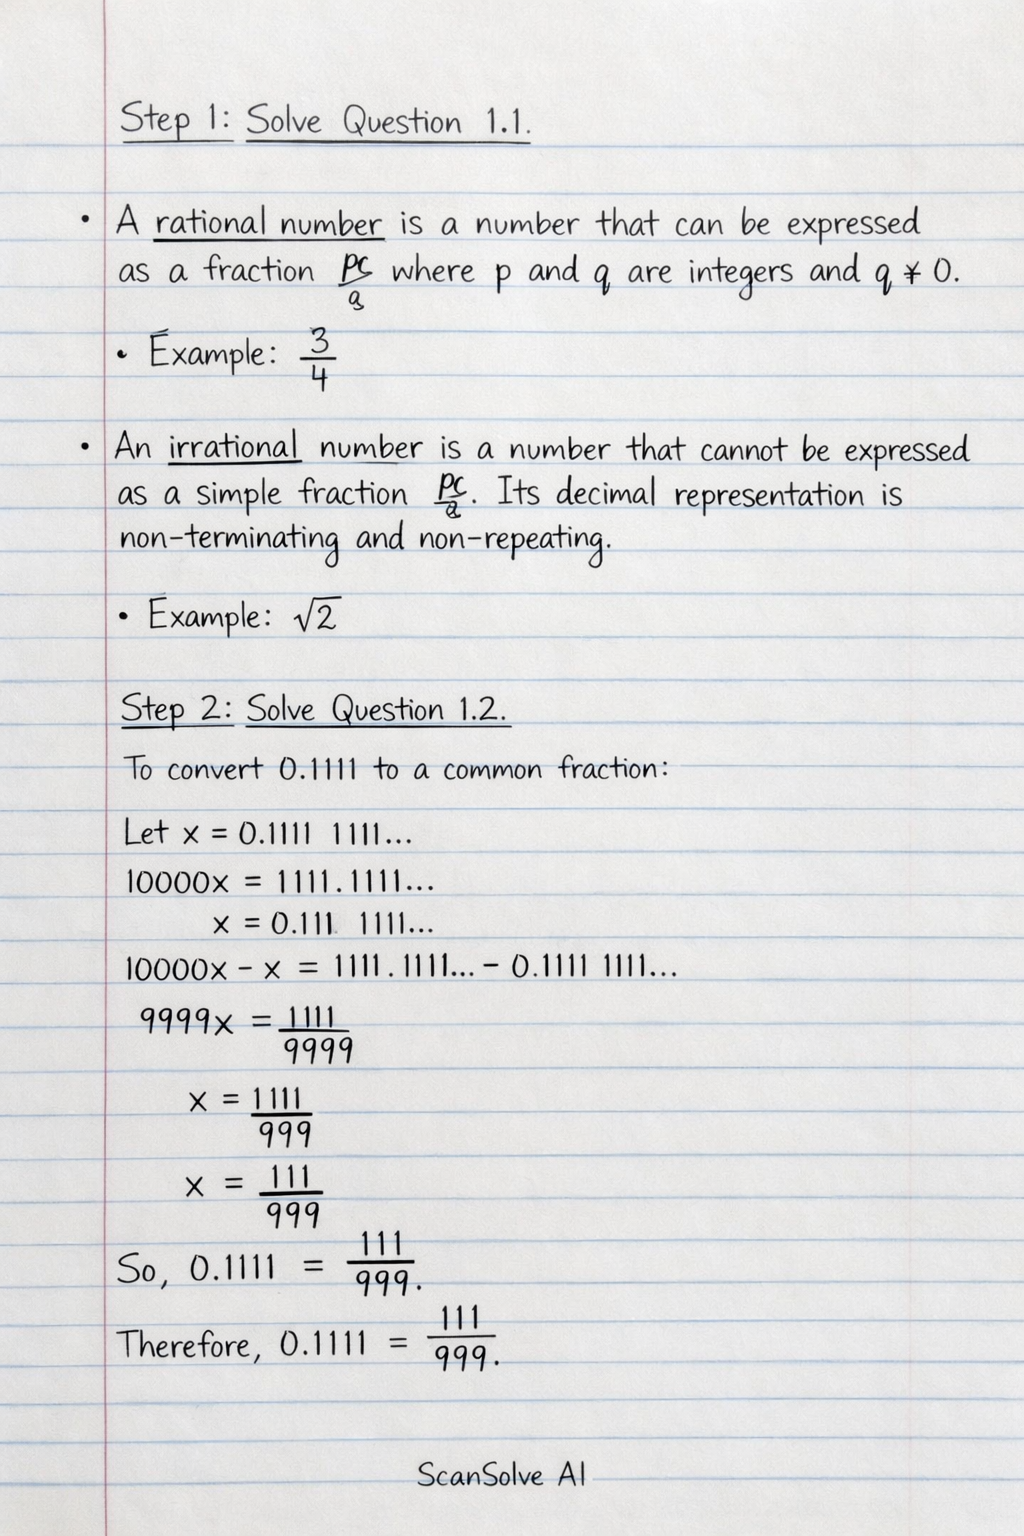 Step 1: Solve Question 1.1.
• A rational number is a number that can be expressed
as a fraction pc/q where p and q are integers and q ≠ 0.
• Example: 3/4
• An irrational number is a number that cannot be expressed
as a simple fraction pc/q. Its decimal representation is
non-terminating and non-repeating.
• Example: √2
Step 2: Solve Question 1.2.
To convert 0.1111 to a common fraction:
Let x = 0.1111 1111...
10000x = 1111.1111...
x = 0.111 1111...
10000x - x = 1111.1111... - 0.1111 1111...
9999x = 1111/9999
x = 1111/999
x = 111/999
So, 0.1111 = 111/999.
Therefore, 0.1111 = 111/999.
ScanSolve AI